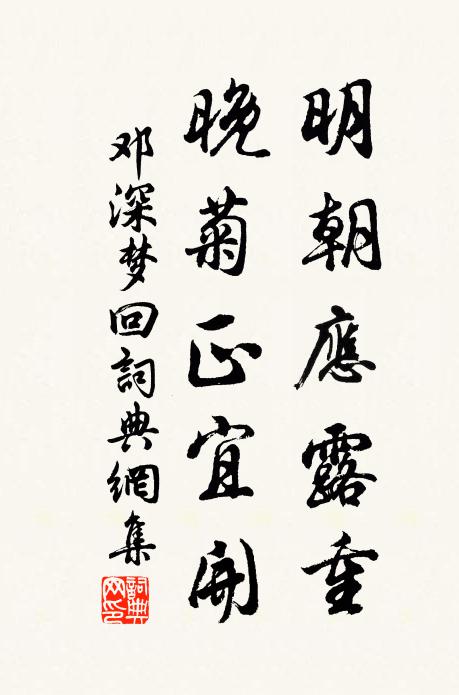 明朝應露重
晚菊正宜開
邓深梦回詞典網集
詞典网印